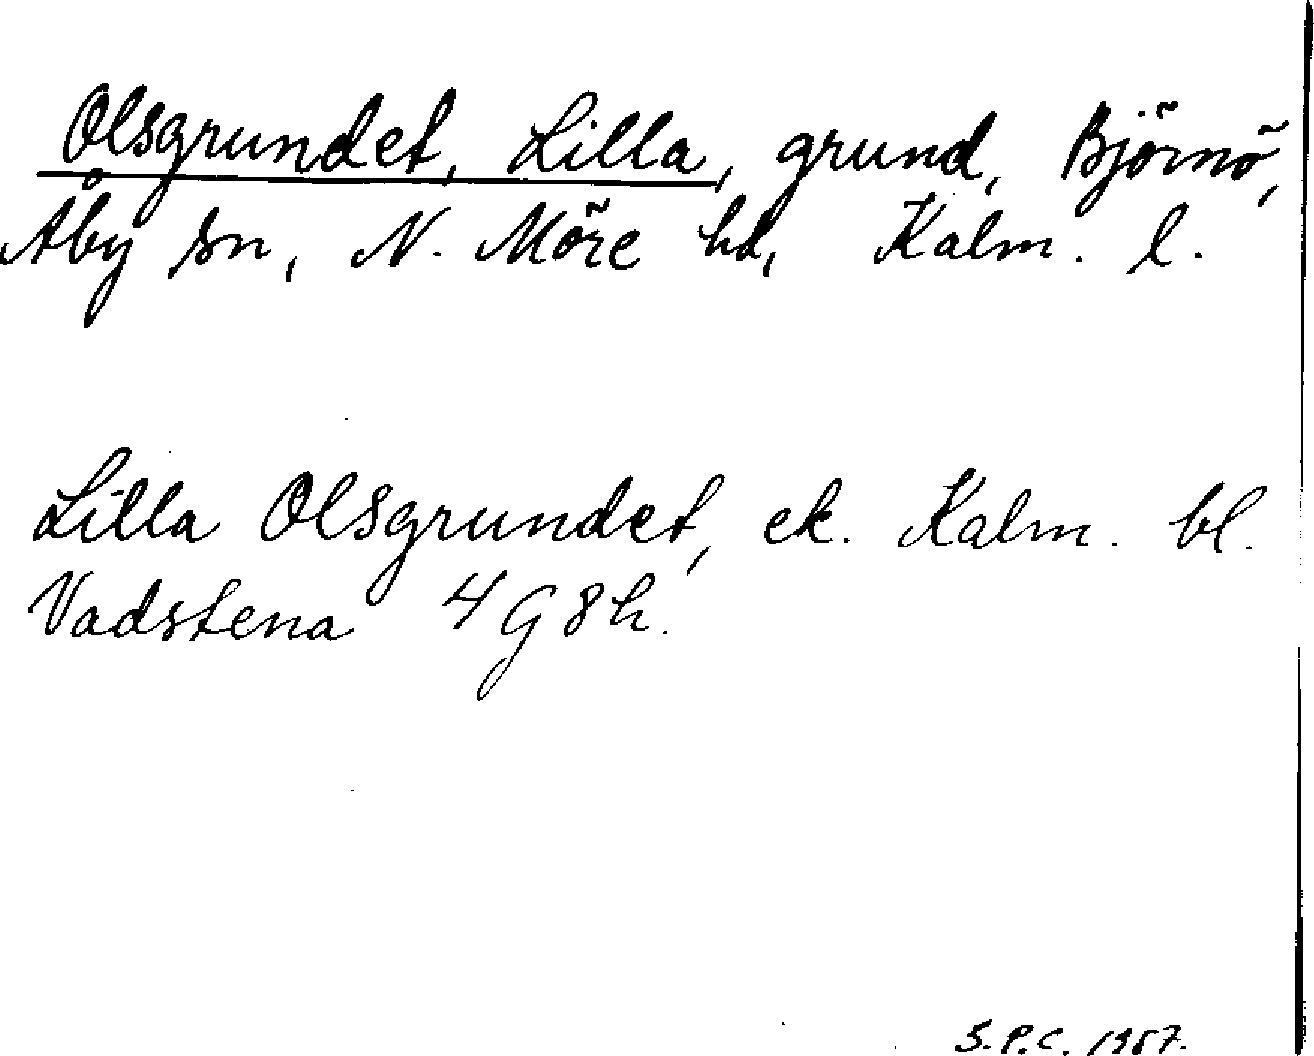 Olsgrundet, Lilla, grund, Björnö,
Åby sn, N. Möre hd, Kalm. l.
Lilla Olsgrundet, ek. Kalm. bl.
Vadstena 4 G 8 h.
S.P.C. 1957.